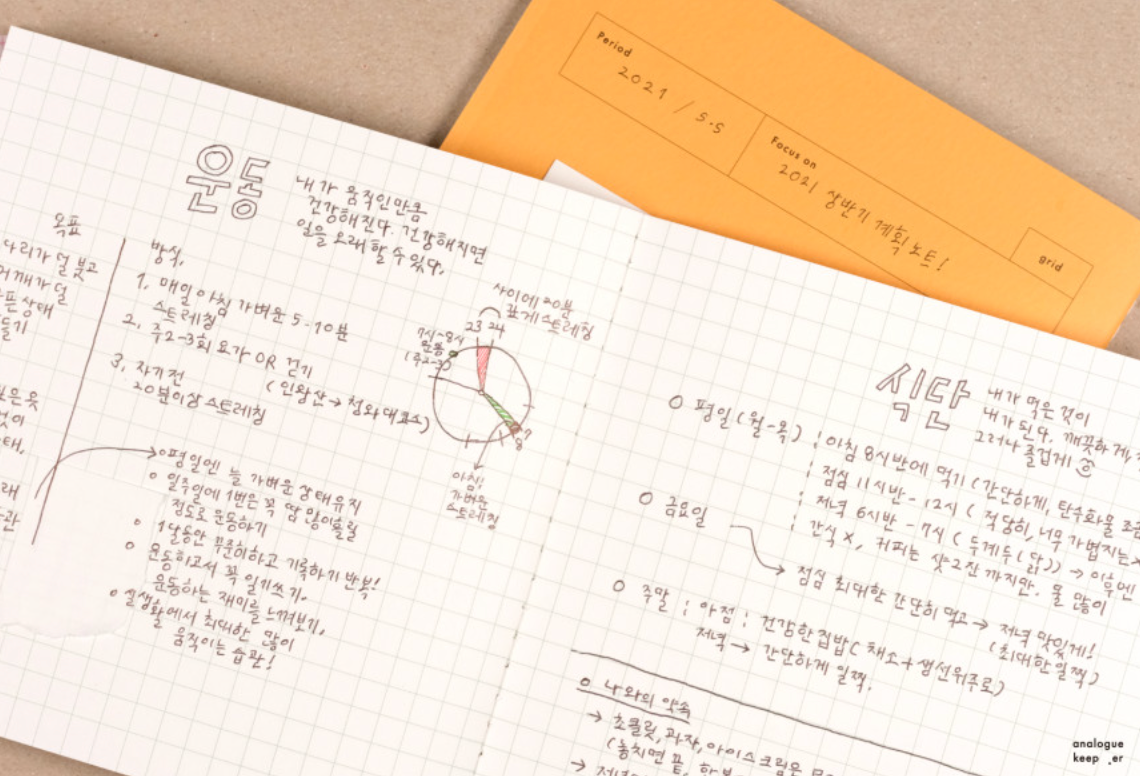 Period
2021 / 5.5
Focus on
2021 상반기 계획노트!
grid
운동
내가 움직인만큼
건강해진다. 건강해지면
일을 오래 할 수 있다.
목표
다리가 덜 붓고
어깨가 덜
상태
방식.
1. 매일 아침 가벼운 5-10분
스트레칭
2. 주2-3회 요가 OR 걷기
(인왕산 → 청와대코스)
3. 자기전
20분이상 스트레칭
사이에 20분
깊게 스트레칭
23 24
7시-8시
운동
(주2-3)
7
8
아침!
가벼운
스트레칭
평일엔 늘 가벼운 상태유지
일주일에 1번은 꼭 땀 많이흘릴
정도로 운동하기
1달동안 꾸준히하고 기록하기 반복!
운동하고서 꼭 일기쓰기.
운동하는 재미를 느껴보기.
실생활에서 최대한 많이
움직이는 습관!
식단
내가 먹은 것이
내가 된다. 깨끗하게,
그러나 즐겁게
평일 (월-목) : 아침 8시반에 먹기 (간단하게, 탄수화물 조금
점심 11시반 - 12시 ( 적당히, 너무 가볍지는x
저녁 6시반 - 7시 ( 두계두(닭)) → 이후엔
간식 x, 커피는 샷2잔 까지만. 물 많이
금요일
점심 최대한 간단히 먹고 → 저녁 맛있게!
(최대한 일찍)
주말 ; 아점 : 건강한집밥( 채소+생선위주로)
저녁 → 간단하게 일찍.
나와의 약속
→ 초콜릿, 과자, 아이스크림은
(놓치면 끝,
→ 저녁
analogue
keep er